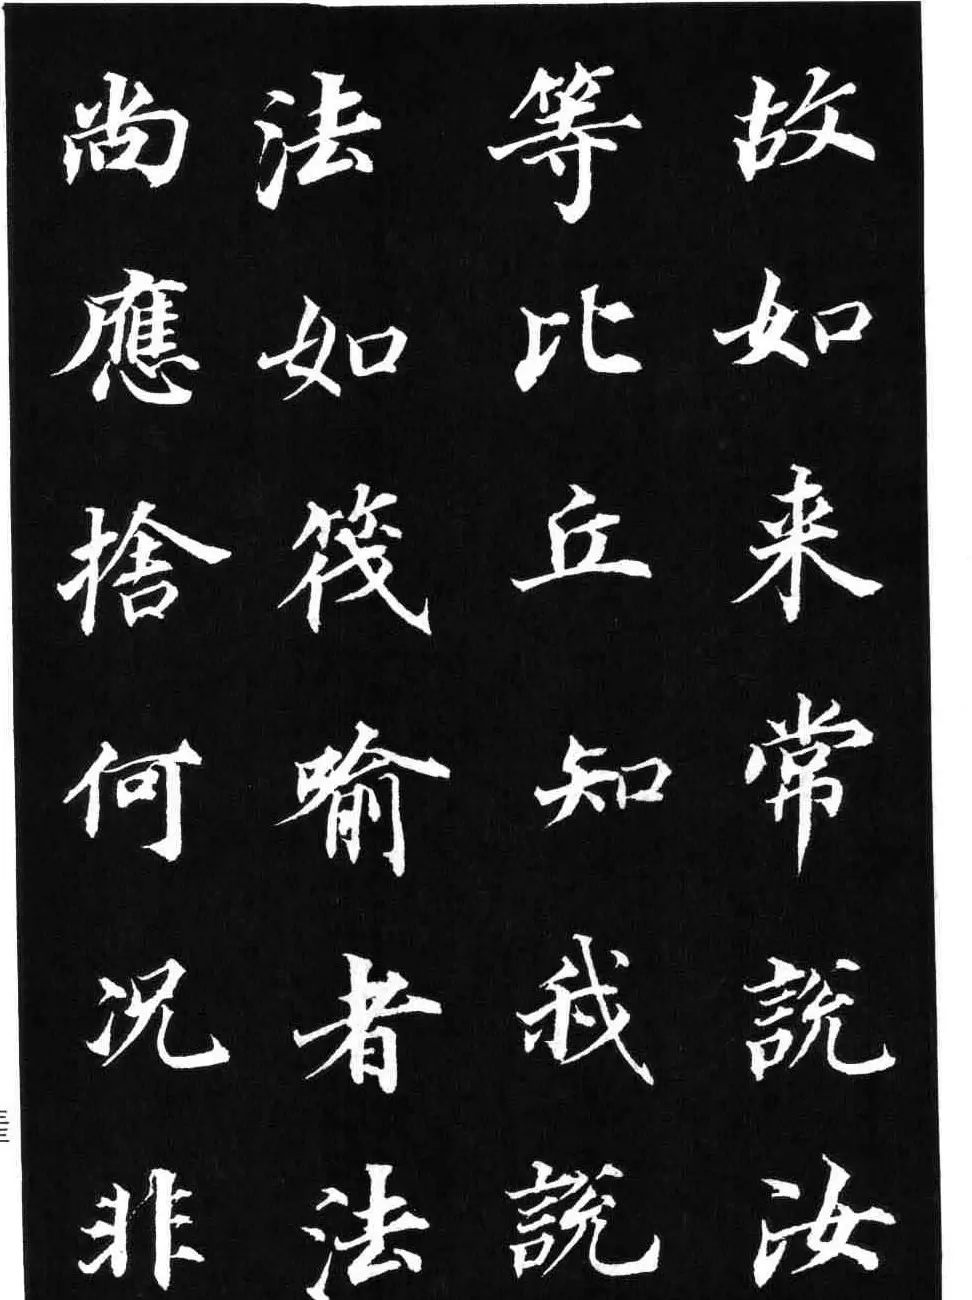 故如来常説汝
等比丘知我説
法如筏喻者法
尚應捨何況非